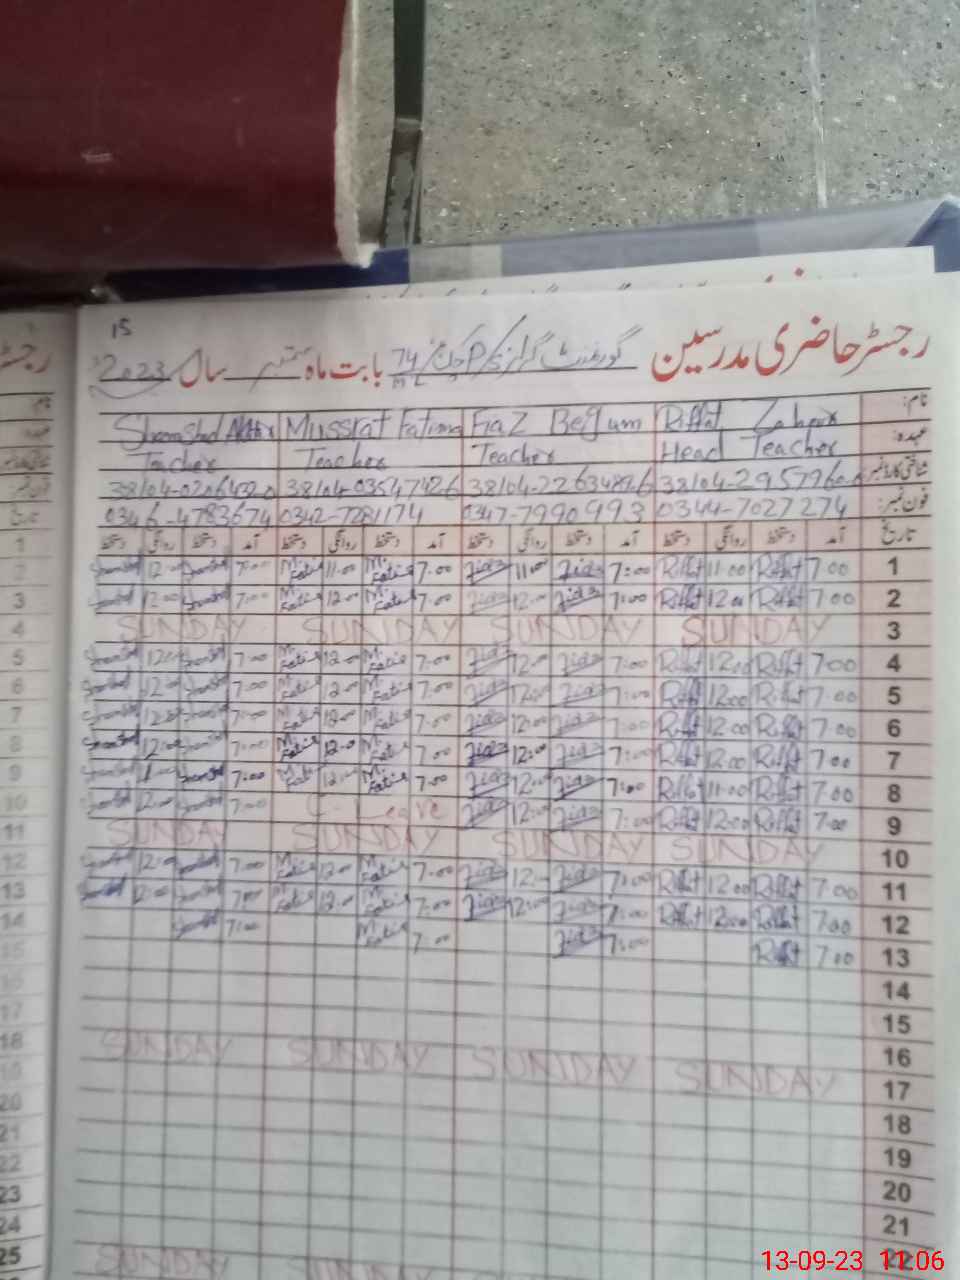 15
رجسٹر حاضری مدرسین گورنمنٹ گرلز P/S چک نمبر 74 ML بابت ماہ ستمبر سال 2023
نام: Riffat Zahoor Fiaz Begum Mussrat Fatima Shamshad Akhtar
عہدہ: Head Teacher Teacher Teacher Teacher
شناختی کارڈ نمبر 38104-2263489-6 38104-0354742-6
فون نمبر: 0344-7027274 0347-7990993 0342-7281174 0346-4783674
تاریخ آمد دستخط روانگی دستخط آمد دستخط روانگی دستخط آمد دستخط روانگی دستخط آمد دستخط روانگی دستخط
1 7:00 Riffat 11:00 Riffat 7:00 Fiaz 11:00 Fiaz 7:00 M. Fatima 11:00 M. Fatima 7:00 Shamshad Shamshad
2 7:00 Riffat 12:00 Riffat 7:00 Fiaz 12:00 Fiaz 7:00 M. Fatima 12:00 M. Fatima 7:00 Shamshad 12:00 Shamshad
3 SUNDAY SUNDAY SUNDAY SUNDAY
4 7:00 Riffat 12:00 Riffat 7:00 Fiaz 12:00 Fiaz 7:00 M. Fatima 12:00 M. Fatima 7:00 Shamshad 12:00 Shamshad
5 7:00 Riffat 12:00 Riffat 7:00 Fiaz 12:00 Fiaz 7:00 M. Fatima 12:00 M. Fatima 7:00 Shamshad 12:00 Shamshad
6 7:00 Riffat 12:00 Riffat 7:00 Fiaz 12:00 Fiaz 7:00 M. Fatima 12:00 M. Fatima 7:00 Shamshad 12:00 Shamshad
7 7:00 Riffat 12:00 Riffat 7:00 Fiaz 12:00 Fiaz 7:00 M. Fatima 12:00 M. Fatima 7:00 Shamshad 12:00 Shamshad
8 7:00 Riffat 11:00 Riffat 7:00 Fiaz Fiaz 7:00 M. Fatima M. Fatima 7:00 Shamshad Shamshad
9 7:00 Riffat 12:00 Riffat 7:00 Fiaz 12:00 Fiaz C-Leave 7:00 Shamshad 12:00 Shamshad
10 SUNDAY SUNDAY SUNDAY SUNDAY
11 7:00 Riffat 12:00 Riffat 7:00 Fiaz 12:00 Fiaz 7:00 M. Fatima 12:00 M. Fatima 7:00 Shamshad 12:00 Shamshad
12 7:00 Riffat 12:00 Riffat 7:00 Fiaz 12:00 Fiaz 7:00 M. Fatima 12:00 M. Fatima 7:00 Shamshad 12:00 Shamshad
13 7:00 Riffat 7:00 Fiaz 7:00 M. Fatima 7:00 Shamshad
14
15
16
17 SUNDAY SUNDAY SUNDAY SUNDAY
18
19
20
21
22
SUNDAY SUNDAY
13-09-23 11:06